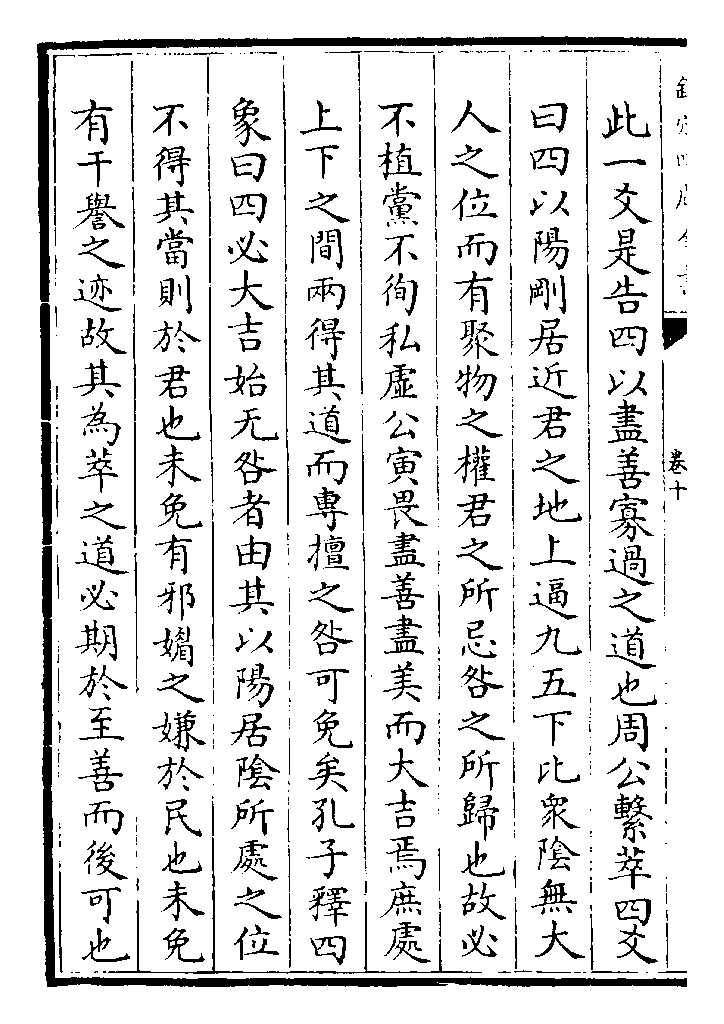 此一爻是告四以盡善寡過之道也周公繫萃四爻
曰四以陽剛居近君之地上逼九五下比衆陰無大
人之位而有聚物之權君之所忌咎之所歸也故必
不植黨不徇私虛公寅畏盡善盡美而大吉焉庶處
上下之間兩得其道而專擅之咎可免矣孔子釋四
象曰四必大吉始无咎者由其以陽居陰所處之位
不得其當則於君也未免有邪媚之嫌於民也未免
有干譽之迹故其為萃之道必期於至善而後可也
卷十